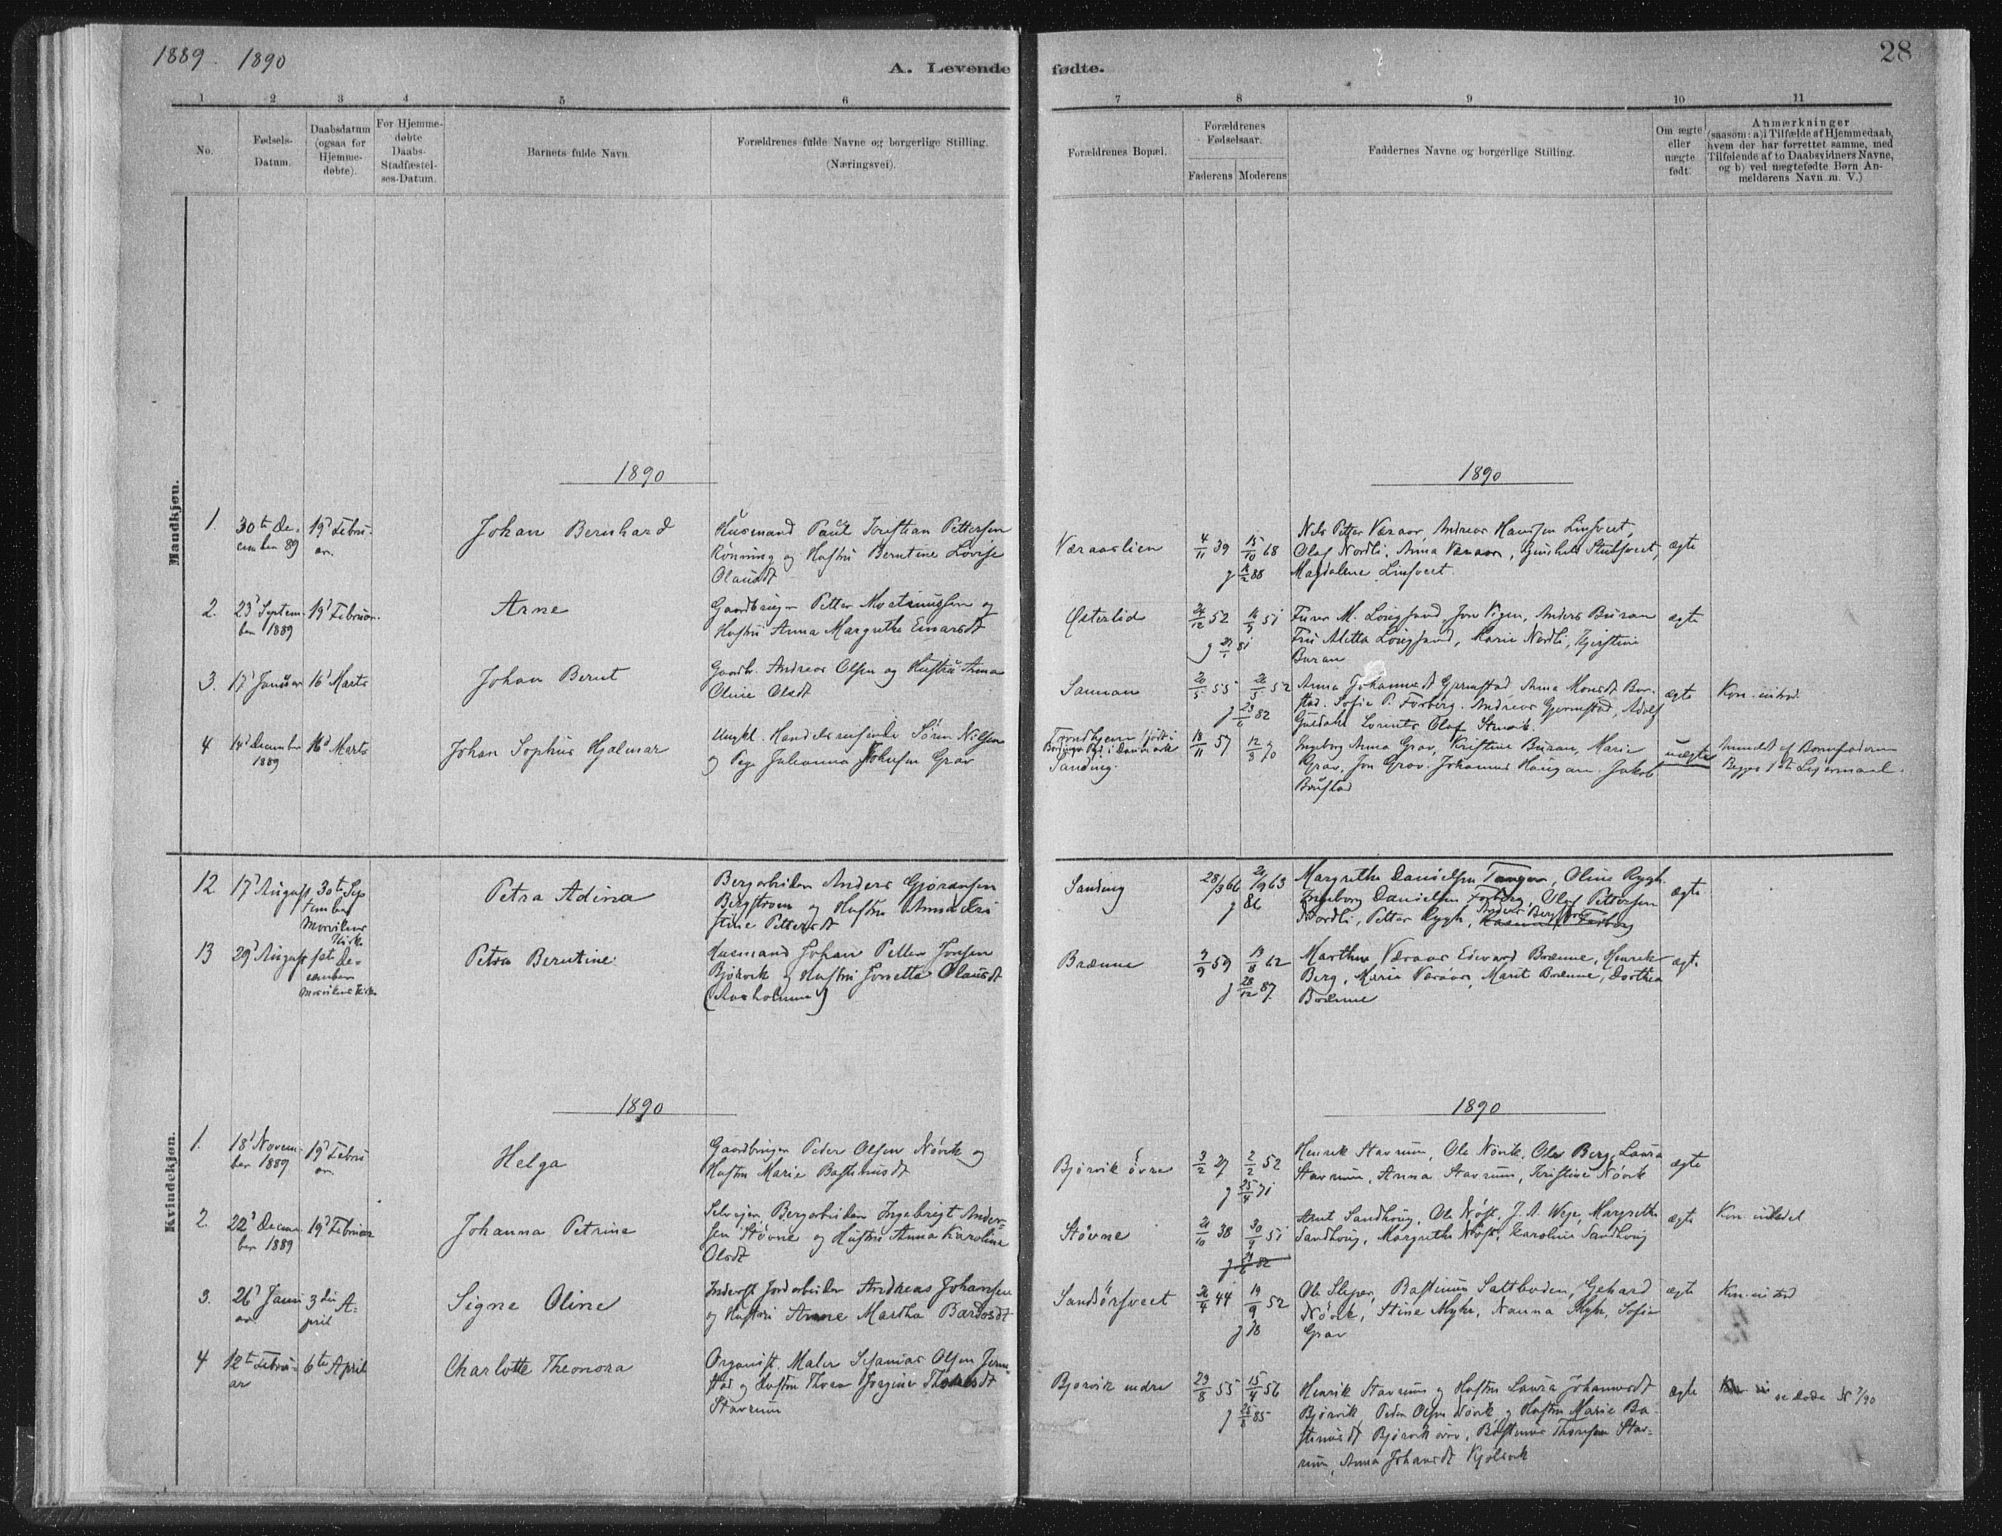 1889 - 1890
A. Levende fødte.
28
1 2 3 4 5 6 7 8 9 10 11
No.
Fødsels-
Datum.
Daabsdatum
(ogsaa for
Hjemme-
døbte).
For Hjemme-
døbte
Daabs-
Stadfæstel-
ses-Datum.
Barnets fulde Navn.
Forældrenes fulde Navne og borgerlige Stilling.
(Næringsvei).
Forældrenes Bopæl.
Forældrenes
Fødselsaar.
Faderens Moderens
Faddernes Navne og borgerlige Stilling.
Om ægte
eller
uægte
født.
Anmærkninger
(saasom: a) i Tilfælde af Hjemmedaab,
hvem der har forrettet samme, med
Tilføiende af to Daabsvidners Navne,
og b) ved uægtefødte Børn An-
melderens Navn m. V.)
Mandkjøn.
1890
1890
1.
30te De-
cember 89
19d Febru-
ar.
Johan Bernhard
Husmand Paul Kristian Pettersen
Rønning og Hustru Berntine Lovise
Olausdt
Væraaslien
4/11 39
15/10 68
Nels Petter Væraas, Andreas Hansen Linsveet,
Olaf Nordli, Anna Væraas,
Magdalene Linsveet.
ægte
2.
23d Septem-
ber 1889
19d Februar.
Arne
Gaardbruger Petter Mortinussen og
Hustru Anna Margrethe Einarsdt
Østerlid
52
51
M. Jon Vigen, Anders Buran
Fru Aletta Marie Nordli, Kjerstine
Buran
ægte
3.
17d Januar
16d Marts
Johan Bernt
Gaardb. Andreas Olsen og Hustru Anna
Oline Olsdt
Sannan
20/5 55
52
82
Anna Johannesdt Gjermstad, Anna Monsdt Bor-
stad. Sofie P. Forberg. Andreas Gjermstad, Adolf
Lorents Olaf
ægte
Kon. introd.
4
14d December
1889
16d Marts
Johan Sophus Hjalmar
Ungkl. Handelsreisende Søren Nilsen
og Pige Julianna Johnsen Grav
Trondhjem født i
Danmark
Sanding.
18/11 57
12/3 70
Ingeborg Anna Grav, Kristine Buran, Marie
Grav, Jon Grav. Johannes Haugan. Jakob
Bustad
uægte
Anmeldt af Barnefaderen
Begges 1ste Leiermaal.
12
17d August
30te Sep
tember
Mosvikens
Kirke
Petra Adina
Bergarbeider Anders Gjøransen
Bergstrøm og Hustru Anna Kri
stine Pettersdt
Sanding
28/3 66
21/9 63
86
Margrethe Danielsen Tangen, Oline Rygh.
Ingeborg Danielsen Forberg, Olaf Pettersen
Nordli, Petter Rygh, Anders Bergstrøm
ægte
13
29d August
1ste De-
cember
Mosvikens Kirke
Petra Berntine
Husmand Johan Petter Jonsen
Bjørvik og Hustru Jonetta Olausdt
(Aasholmen)
Brænne
7/9 59
19/8 62
28/12 87.
Marthin Væraas Edvard Brænne, Henrik
Berg, Maria Væraas, Marit Brænne, Dorthea
Brænne
ægte
Kvindekjøn.
1890
1890
1.
18d Novem-
ber 1889
19d Febru
ar.
Helga
Gaardbruger Peder Olsen Nøvik og
Hustru Marie Bastiansdt
Bjørvik øvre
3/2 27
2/2 52
25/4 71
Henrik Stavrum, Ole Nøvik, Ole Berg, Laura
Stavrum, Anna Stavrum, Kristine Nøvik
ægte
2.
22d Decem-
ber 1889
19d Februar
Johanna Petrine
Selveier, Bergarbeider Ingebrigt Ander-
sen Støvne og Hustru Anna Karoline
Olsdt
Støvne
21/10 38
30/9 51
Arnt Sandhoug, Ole Nøst, J. A. Wege, Margrethe
Sandhoug, Margrethe Nøst, Karoline Sandhoug
ægte
Kon. indledet
3.
26d Janu
ar
3die A-
pril
Signe Oline
Inderst Jordarbeider Andreas Johansen
og Hustru Anne Martha Bardosdt
Sandsørsveet
44
19/9 52
78
Ole Sliper, Bastinus Saltboden, Gerhard
Nøvik, Stine Myhr, Nanna Myhr, Sofie
Grav
ægte
Kon. introd
4
12te Febru-
ar
6te April
Charlotte Theonora
Organist. Maler Sefanias Olsen Jerm-
stad og Hustru Thora Jørgine Thoresdt
Stavrum
Bjørvik nedre
29/8 55
15/4 56
85
Henrik Stavrum og Hustru Laura Johannesdt
Bjørvik, Peder Olsen Nøvik og Hustru Marie Ba-
stiansdt Bjørvik øvre, Bastinus Thoresen Stav-
rum, Anna Johansdt Kjølsvik
ægte
se døde N 7/90